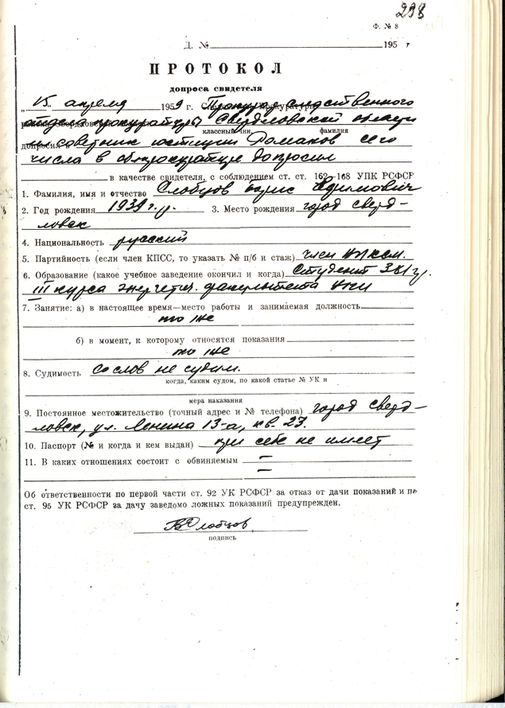 298
Ф. № 8
Д. № 195 г
ПРОТОКОЛ
допроса свидетеля
15 апреля 1959 г. Прокурор следственного
отдела прокуратуры Свердловской области
советник юстиции Романов сего
классный чин, фамилия
числа в облпрокуратуре допросил
в качестве свидетеля, с соблюдением ст. ст. 162-168 УПК РСФСР
1. Фамилия, имя и отчество Слобцов Борис Ефимович
2. Год рождения 1939 г.р. 3. Место рождения город Сверд-
ловск
4. Национальность русский
5. Партийность (если член КПСС, то указать № п/б и стаж) член ВЛКСМ.
6. Образование (какое учебное заведение окончил и когда) Студент 381 гр.
III курса энергетич. факультета УПИ
7. Занятие: а) в настоящее время—место работы и занимаемая должность
то же
б) в момент, к которому относятся показания
то же
8. Судимость со слов не судим.
когда, каким судом, по какой статье № УК и
мера наказания
9. Постоянное местожительство (точный адрес и № телефона) город Сверд-
ловск, ул. Ленина 13-а, кв. 27.
10. Паспорт (№ и когда и кем выдан) при себе не имеет
11. В каких отношениях состоит с обвиняемым —
—
Об ответственности по первой части ст. 92 УК РСФСР за отказ от дачи показаний и по
ст. 95 УК РСФСР за дачу заведомо ложных показаний предупрежден.
БСлобцов
подпись